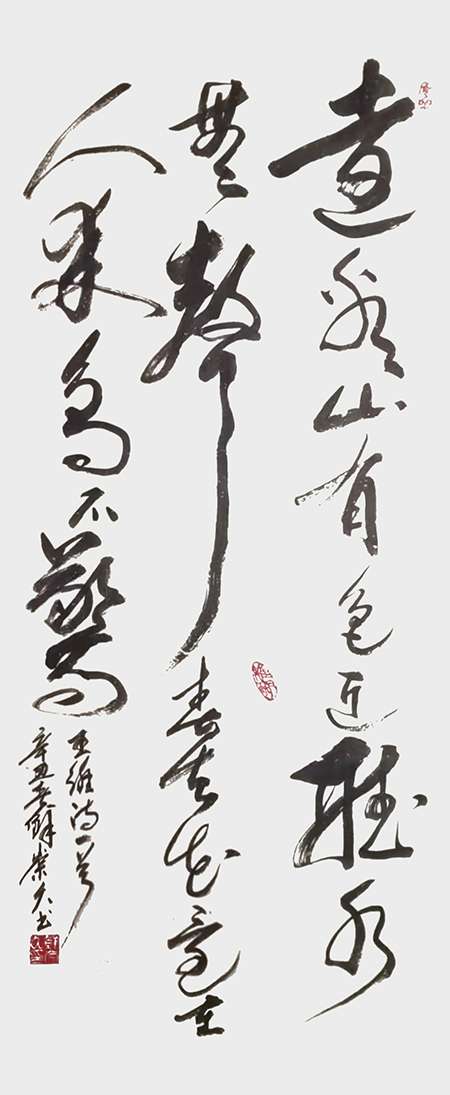 遠看山有色近聽水
無聲春去花還在
人来鳥不驚
王維詩一首
辛丑 書